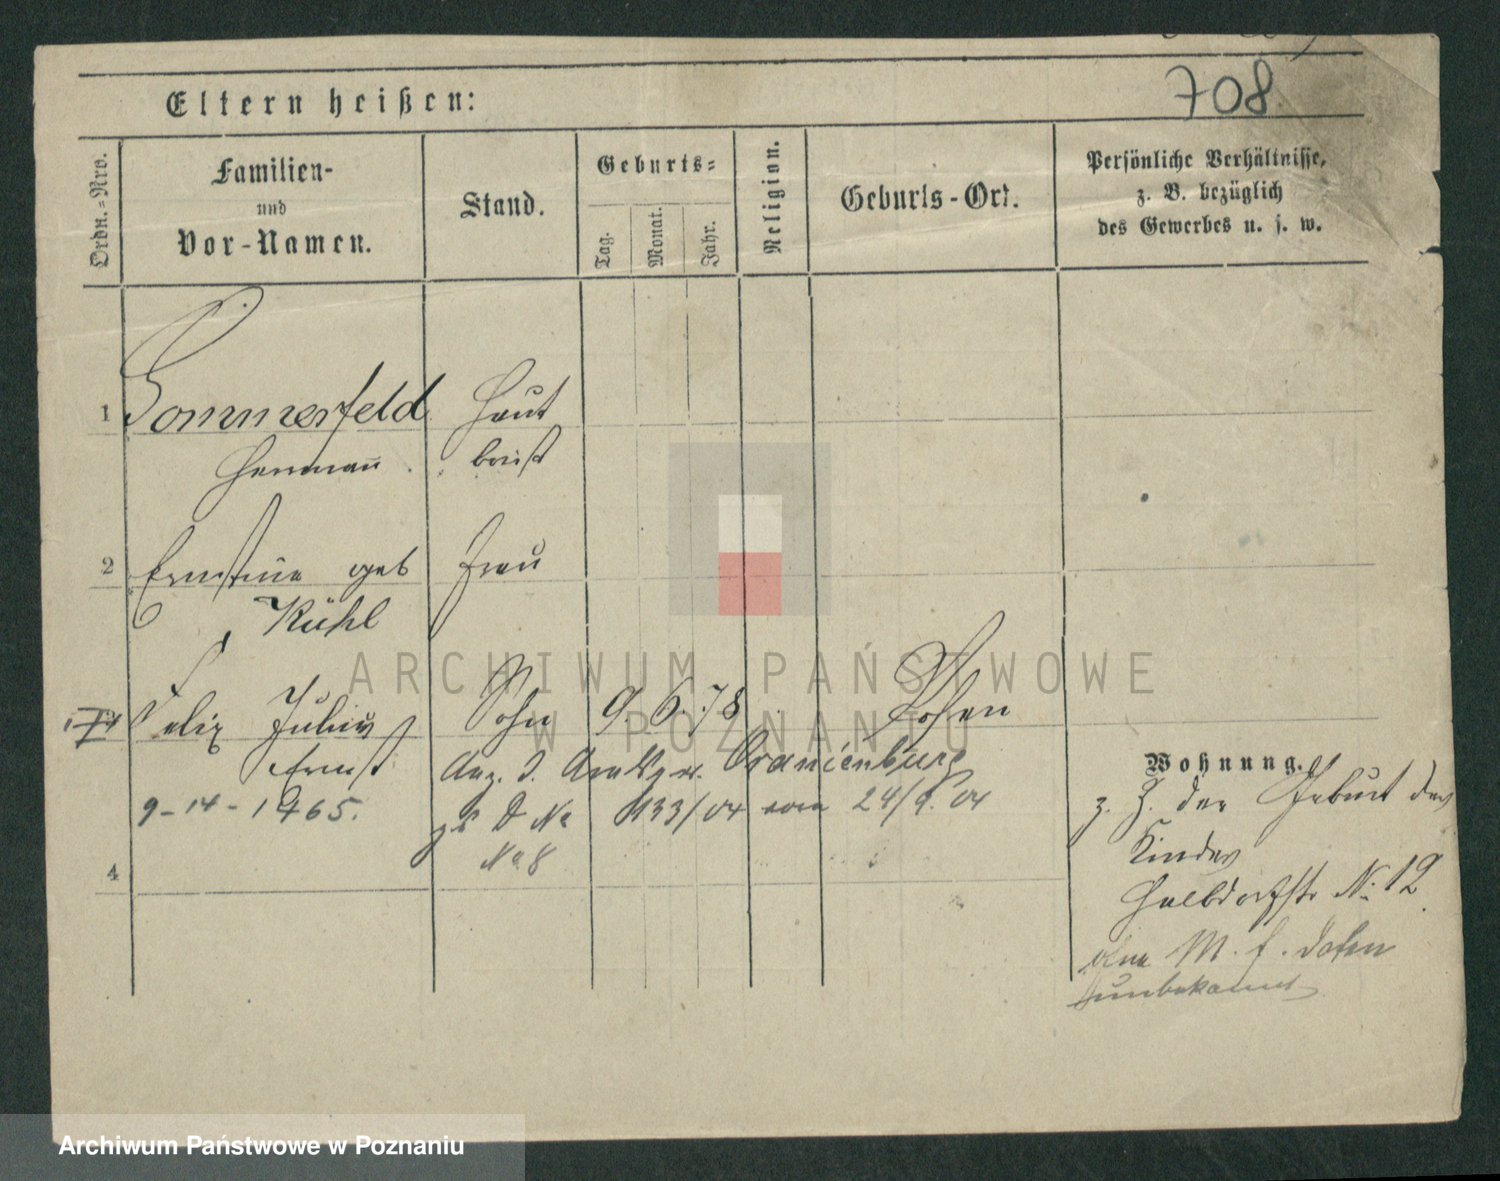 708
Eltern heißen:
Ordn.=Nro.
Familien-
und
Vor-Namen.
Stand.
Geburts-
Tag.
Monat.
Jahr.
Religion.
Geburts-Ort.
Persönliche Verhältnisse,
z. B. bezüglich
des Gewerbes u. s. w.
1 Sommerfeld Haut
Hermann boist
2 Ernstine geb Frau
Kühl
Felix Julius Sohn 9. 6. 78 Posen
Ernst
Oranienburg
9-14-1465. 133/04 vom 24/9. 04
No 8
4
Wohnung.
z. Z. der Geburt des
Kindes
Halbdorfstr No 12
unbekannt
ARCHIWUM PAŃSTWOWE
W POZNANIU
Archiwum Państwowe w Poznaniu